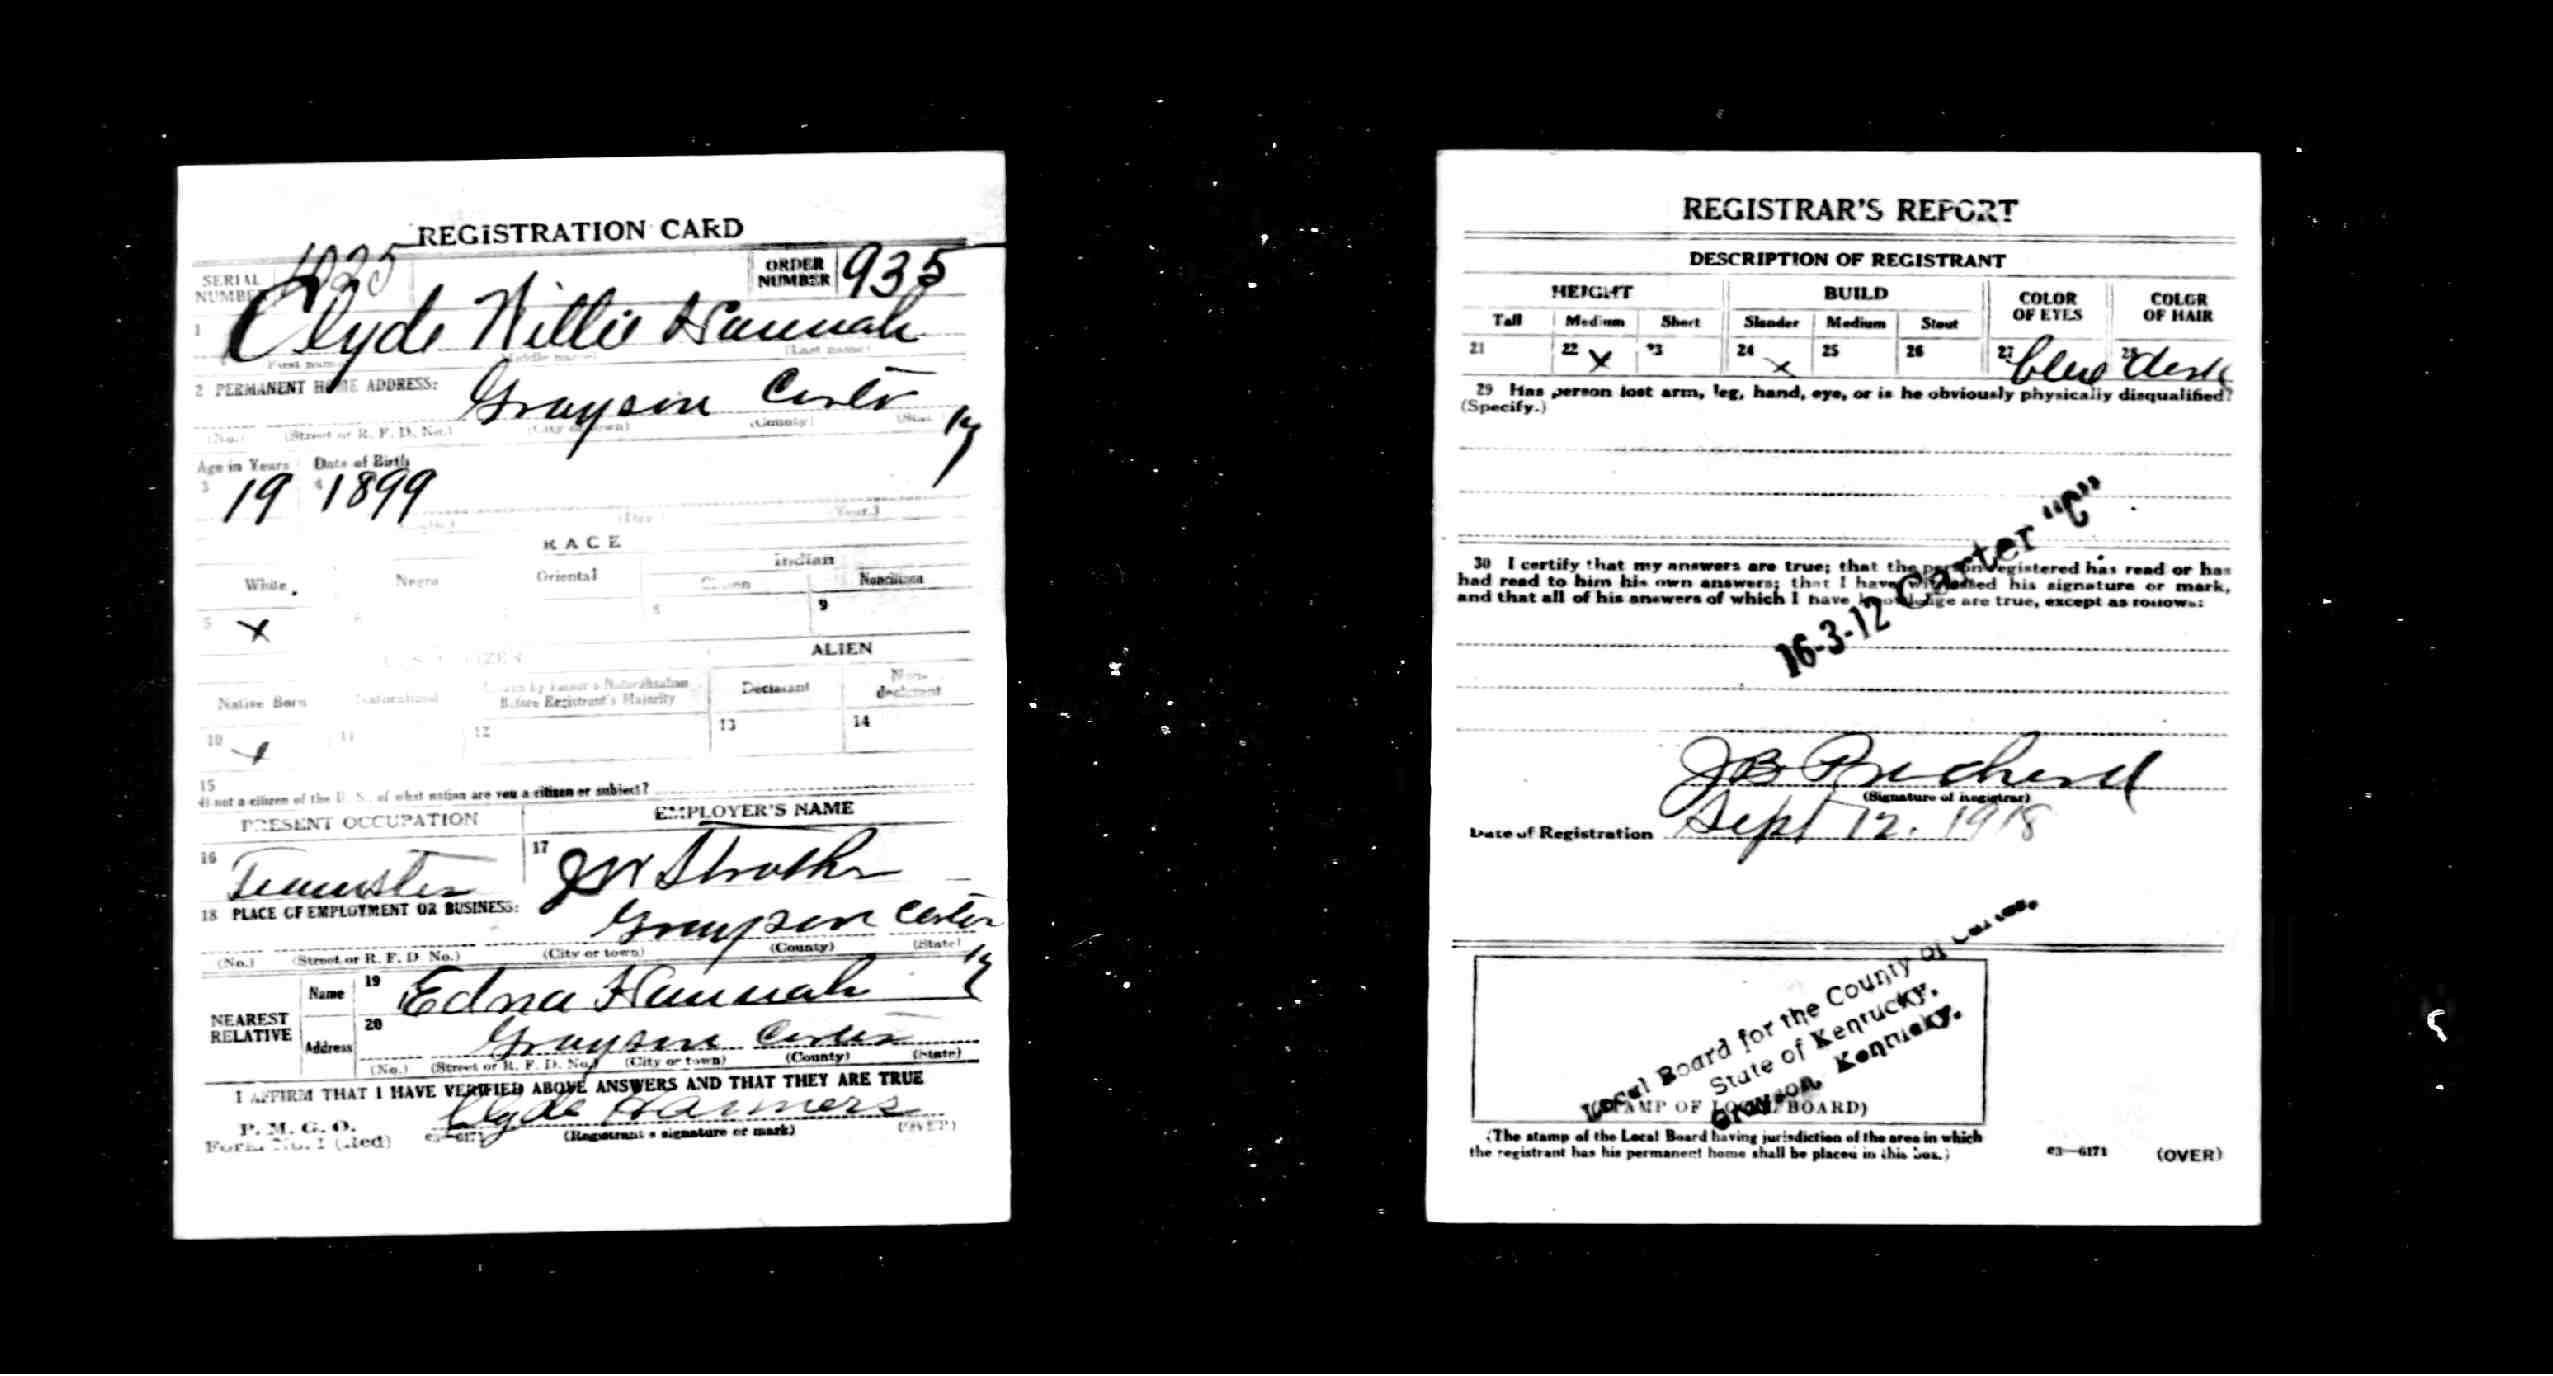 REGISTRATION CARD
SERIAL NUMBER
ORDER NUMBER 935
1 Clyde Willie Hannah
First name (Middle name) (Last name)
2 PERMANENT HOME ADDRESS: Grayson Carter Ky
(No.) (Street or R. F. D. No.) (City or town) (County) (State)
Age in Years Date of Birth
3 19 4 1899
(Day) (Year.)
RACE
White Negro Oriental Indian
Citizen Noncitizen
5 X 6 8 9
U. S. CITIZEN ALIEN
Native Born Naturalized Citizen by Father's Naturalization Before Registrant's Majority Declarant Non-declarant
10 X 11 12 13 14
15
If not a citizen of the U. S., of what nation are you a citizen or subject?
PRESENT OCCUPATION EMPLOYER'S NAME
16 Teamster 17 JW Strother
18 PLACE OF EMPLOYMENT OR BUSINESS: Grayson Carter Ky
(No.) (Street or R. F. D. No.) (City or town) (County) (State)
NEAREST RELATIVE
Name 19 Edna Hannah
Address 20 Grayson Carter
(No.) (Street or R. F. D. No.) (City or town) (County) (State)
I AFFIRM THAT I HAVE VERIFIED ABOVE ANSWERS AND THAT THEY ARE TRUE
Clyde
P. M. G. O.
Form No. 1 (Red) 03—6171 (Registrant's signature or mark) (OVER)
REGISTRAR'S REPORT
DESCRIPTION OF REGISTRANT
HEIGHT BUILD COLOR OF EYES COLOR OF HAIR
Tall Medium Short Slender Medium Stout
21 22 X 23 24 X 25 26 27 blue 28 dark
29 Has person lost arm, leg, hand, eye, or is he obviously physically disqualified?
(Specify.)
30 I certify that my answers are true; that the person registered has read or has
had read to him his own answers; that I have witnessed his signature or mark,
and that all of his answers of which I have knowledge are true, except as follows:
16-3-12 Carter "C"
JB Prichard
(Signature of Registrar)
Date of Registration Sept 12. 1918
Local Board for the County of Carter,
State of Kentucky,
Grayson, Kentucky.
(STAMP OF LOCAL BOARD)
(The stamp of the Local Board having jurisdiction of the area in which
the registrant has his permanent home shall be placed in this box.)
03—6171 (OVER)